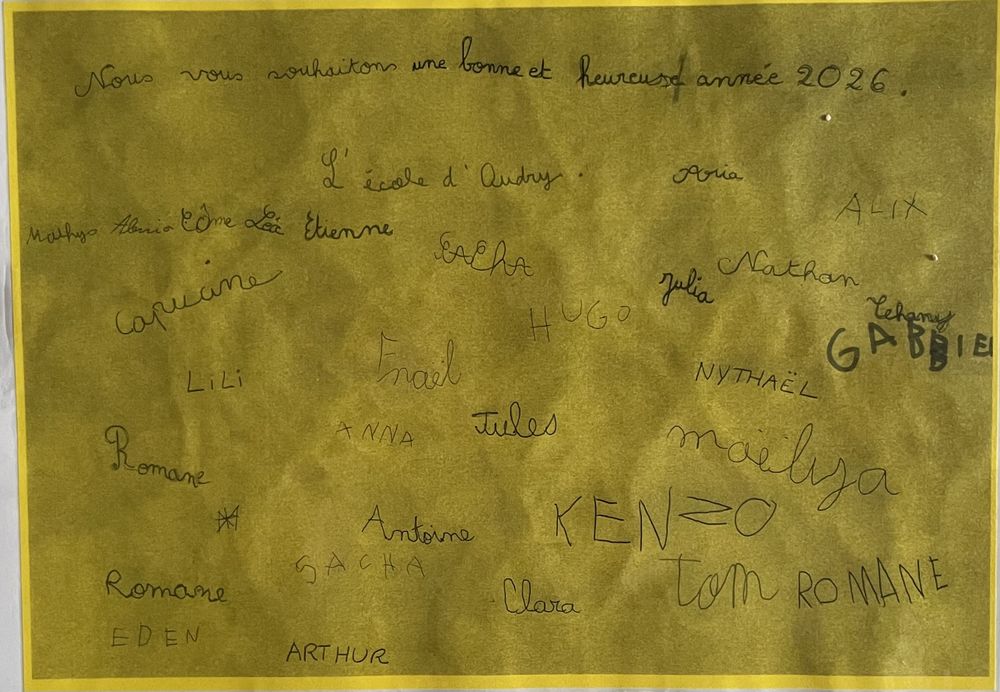 Nous vous souhaitons une bonne et heureuse année 2026.
L'école d'Audry.
Aria
ALIX
Mathys Côme Léa Etienne
SACHA
Nathan
Capucine
Julia
HUGO
Tehany
GABRIEL
LiLi
Enaël
NYTHAËL
ANNA
Jules
maëlya
Romane
Antoine
KENZO
SACHA
tom
ROMANE
Romane
Clara
EDEN
ARTHUR